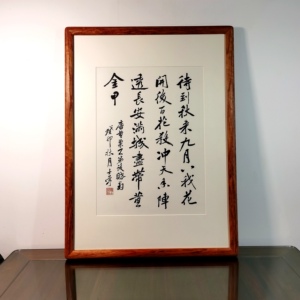 待到秋来九月八我花
開後百花殺冲天香陣
透長安滿城盡帶黄
金甲
唐黄巢不第後賦菊
癸卯秋月